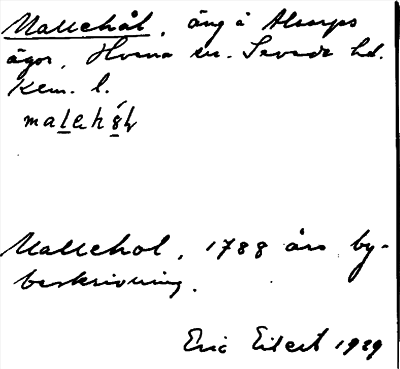 Mallehål, äng å Alsarps
ägor, Horna sn. Sevede hd.
Kem. l.
malehål
Mallehol, 1788 års by-
beskrivning.
Eric Eilert 1929